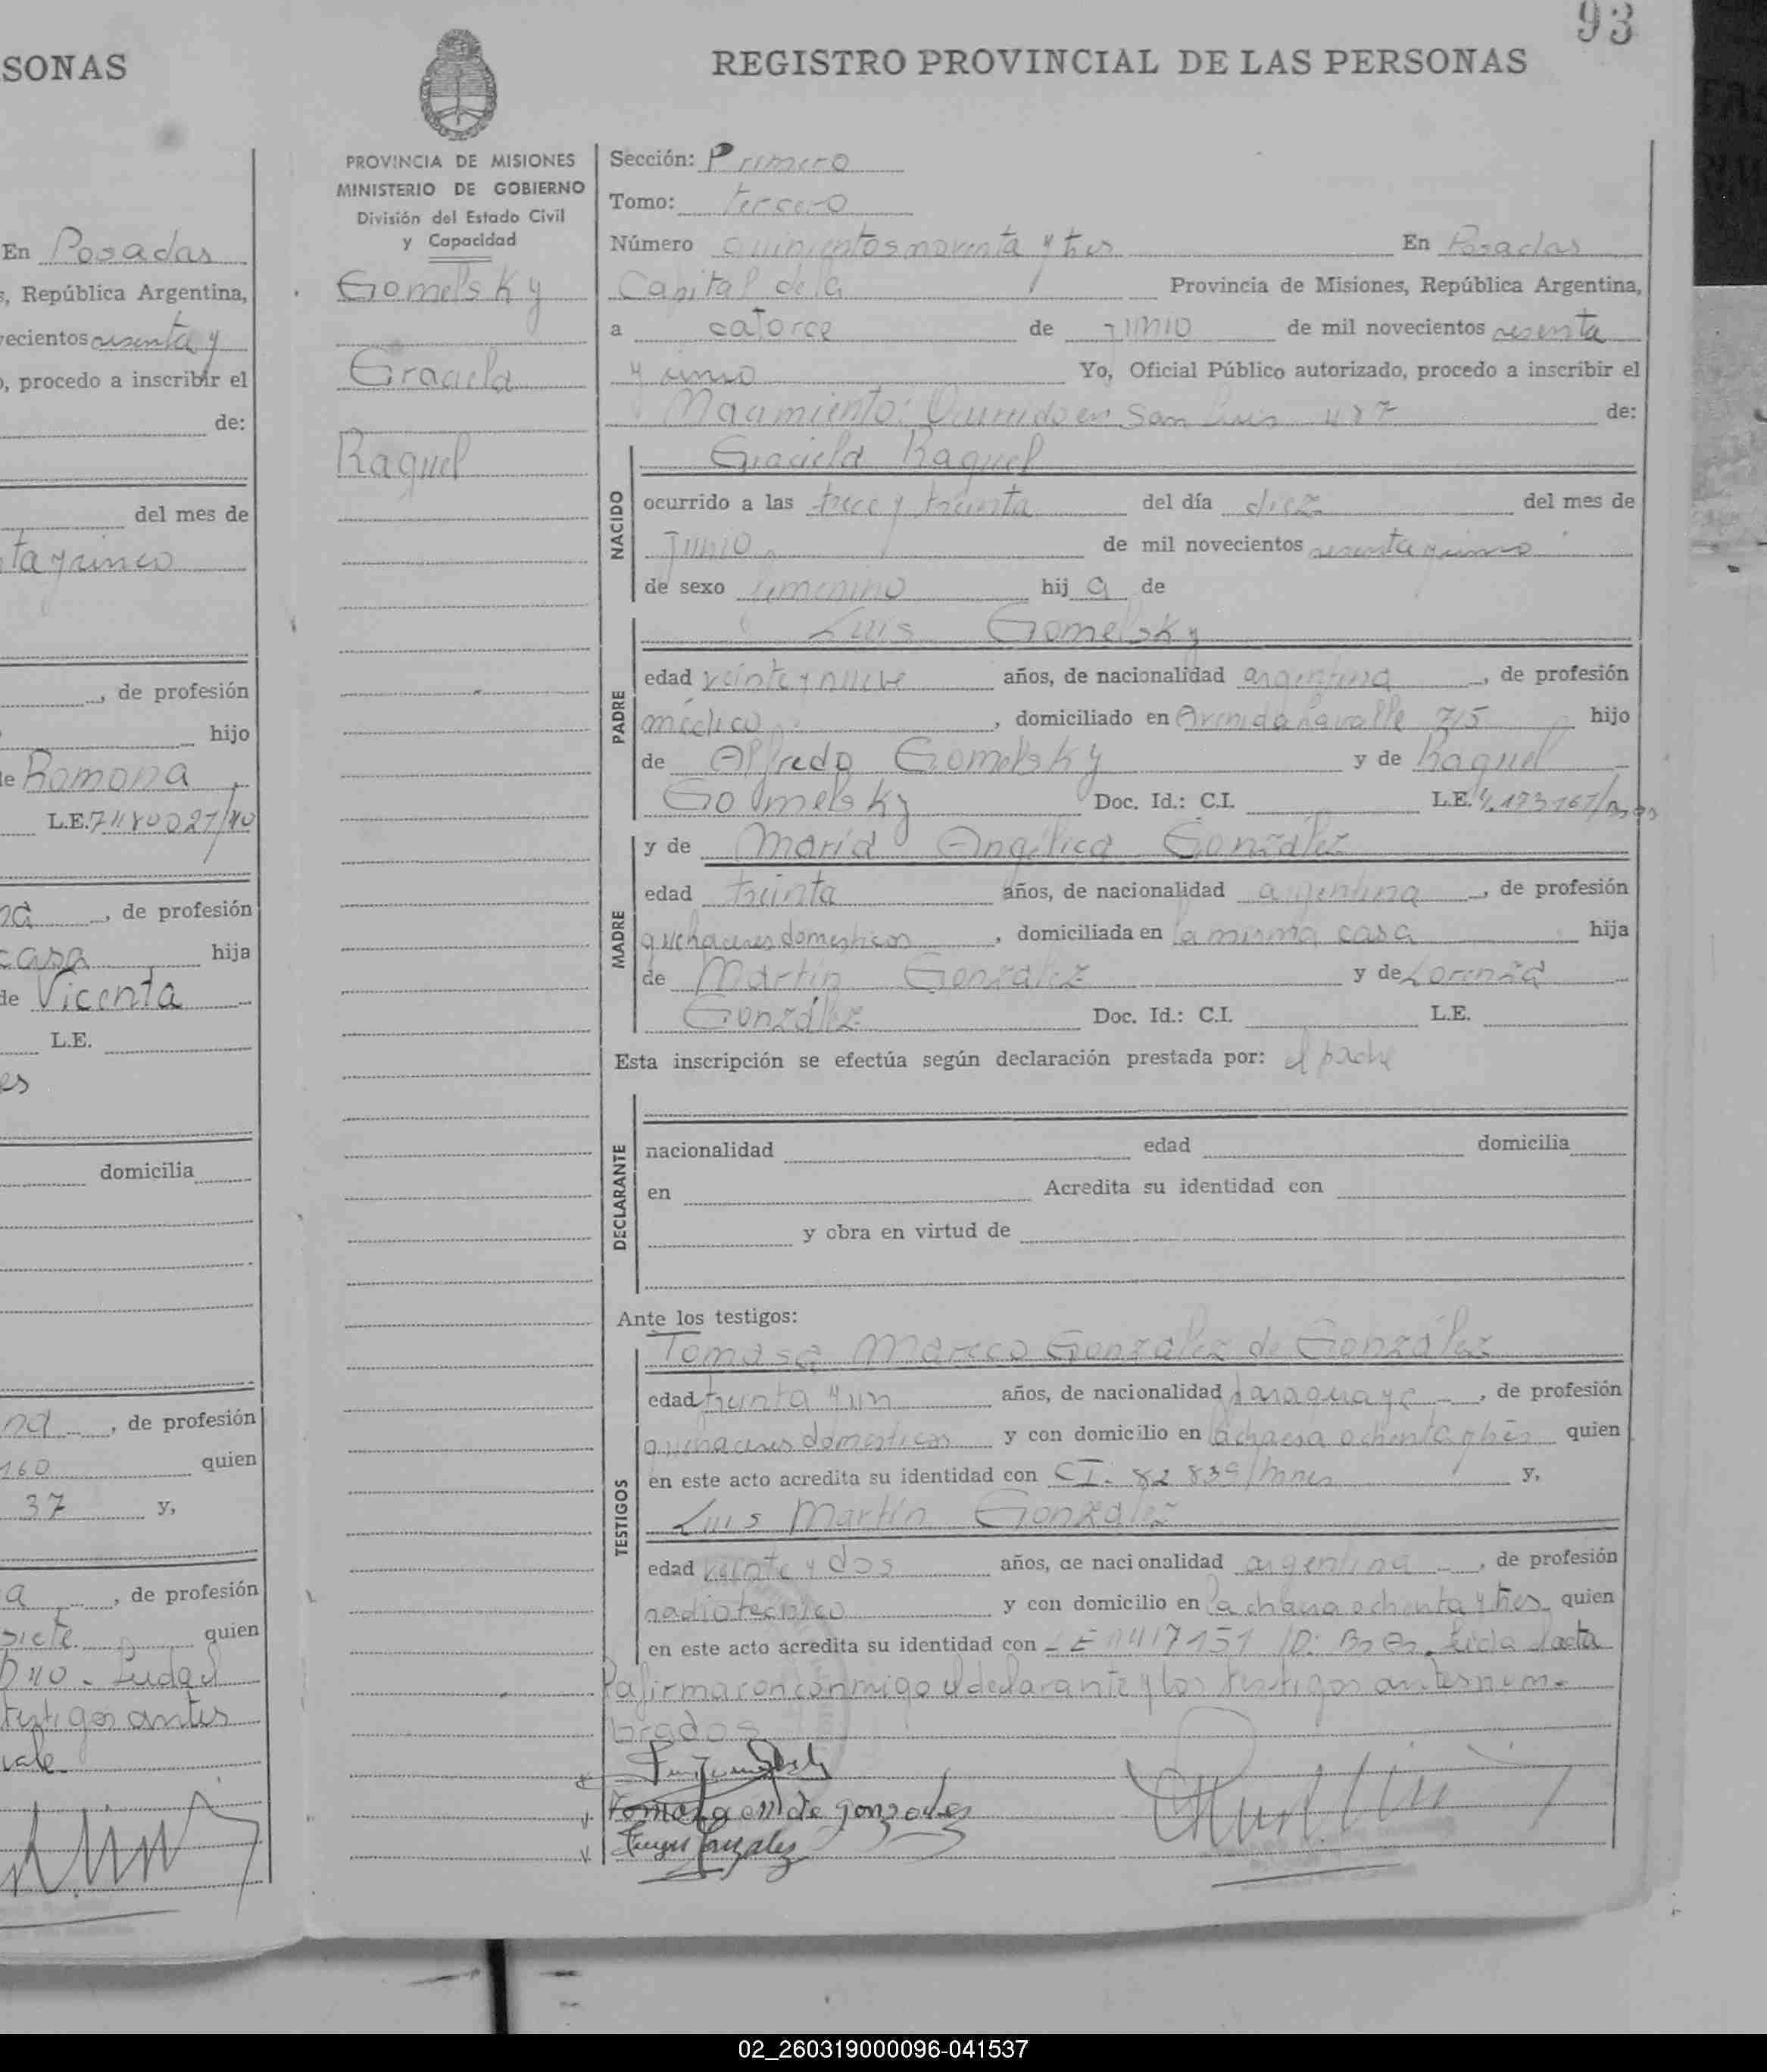 93
SONAS
REGISTRO PROVINCIAL DE LAS PERSONAS
PROVINCIA DE MISIONES
MINISTERIO DE GOBIERNO
División del Estado Civil
y Capacidad
Gomelsky
Graciela
Raquel
En Posadas
s, República Argentina,
vecientos sesenta y
o, procedo a inscribir el
de:
del mes de
ta y cinco
, de profesión
hijo
de Ramona
L.E.
, de profesión
casa hija
de Vicenta
L.E.
es
domicilia
na , de profesión
160 quien
37 y,
a , de profesión
siete quien
testigos antes
vale
Sección: Primero
Tomo: tercero
Número quinientos noventa y tres En Posadas
Capital de la Provincia de Misiones, República Argentina,
a catorce de Junio de mil novecientos sesenta
y cinco Yo, Oficial Público autorizado, procedo a inscribir el
Nacimiento: Ocurrido en San Luis 487 de:
NACIDO
Graciela Raquel
ocurrido a las trece y treinta del día diez del mes de
Junio de mil novecientos sesenta y cinco
de sexo femenino hij a de
PADRE
Luis Gomelsky
edad veinte y nueve años, de nacionalidad argentina , de profesión
médico , domiciliado en Avenida Lavalle 715 hijo
de Alfredo Gomelsky y de Raquel
Gomelsky Doc. Id.: C.I. L.E.
MADRE
y de María Angélica González
edad treinta años, de nacionalidad argentina , de profesión
quehaceres domesticos , domiciliada en la misma casa hija
de Martín González y de Lorenza
González Doc. Id.: C.I. L.E.
Esta inscripción se efectúa según declaración prestada por: el padre
DECLARANTE
nacionalidad edad domicilia
en Acredita su identidad con
y obra en virtud de
Ante los testigos:
TESTIGOS
Tomasa Mareco González de González
edad treinta y un años, de nacionalidad paraguaya , de profesión
quehaceres domesticos y con domicilio en la chacra ochenta y tres quien
en este acto acredita su identidad con CI. 82 839/Mnes y,
Luis Martín González
edad veinte y dos años, de nacionalidad argentina , de profesión
radiotecnico y con domicilio en la chacra ochenta y tres quien
en este acto acredita su identidad con Bs As. Leida la acta
la firmaron conmigo el declarante y los testigos antes nom-
brados
Tomasa M de gonzales
02_260319000096-041537